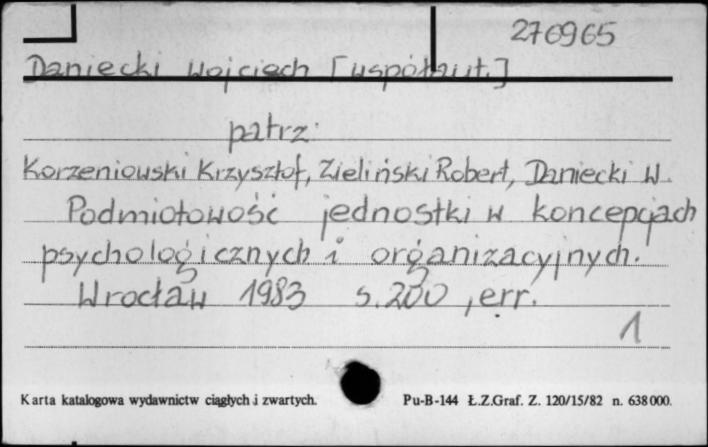 270965
Daniecki Wojciech [współaut.]
patrz:
Korzeniowski Krzysztof, Zieliński Robert, Daniecki W.
Podmiotowość jednostki w koncepcjach
psychologicznych i organizacyjnych.
Wrocław 1983 s. 200, err.
1
Karta katalogowa wydawnictw ciągłych i zwartych. Pu-B-144 Ł.Z.Graf. Z. 120/15/82 n. 638000.